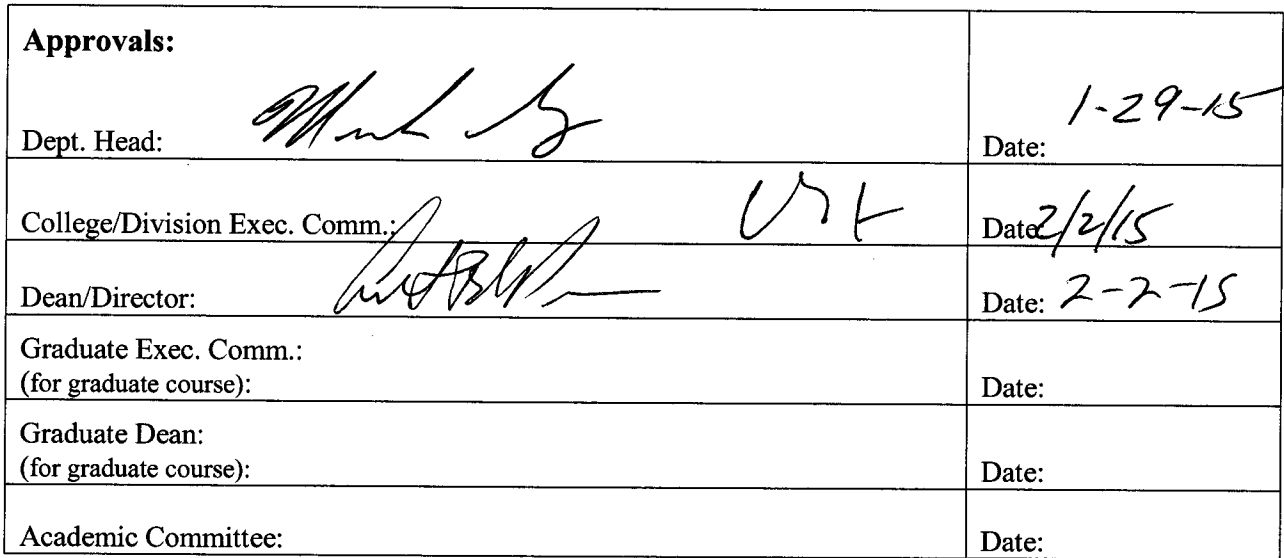 Approvals:
Dept. Head:
Date: 1-29-15
College/Division Exec. Comm.:
Date 2/2/15
Dean/Director:
Date: 2-2-15
Graduate Exec. Comm.:
(for graduate course):
Date:
Graduate Dean:
(for graduate course):
Date:
Academic Committee:
Date: